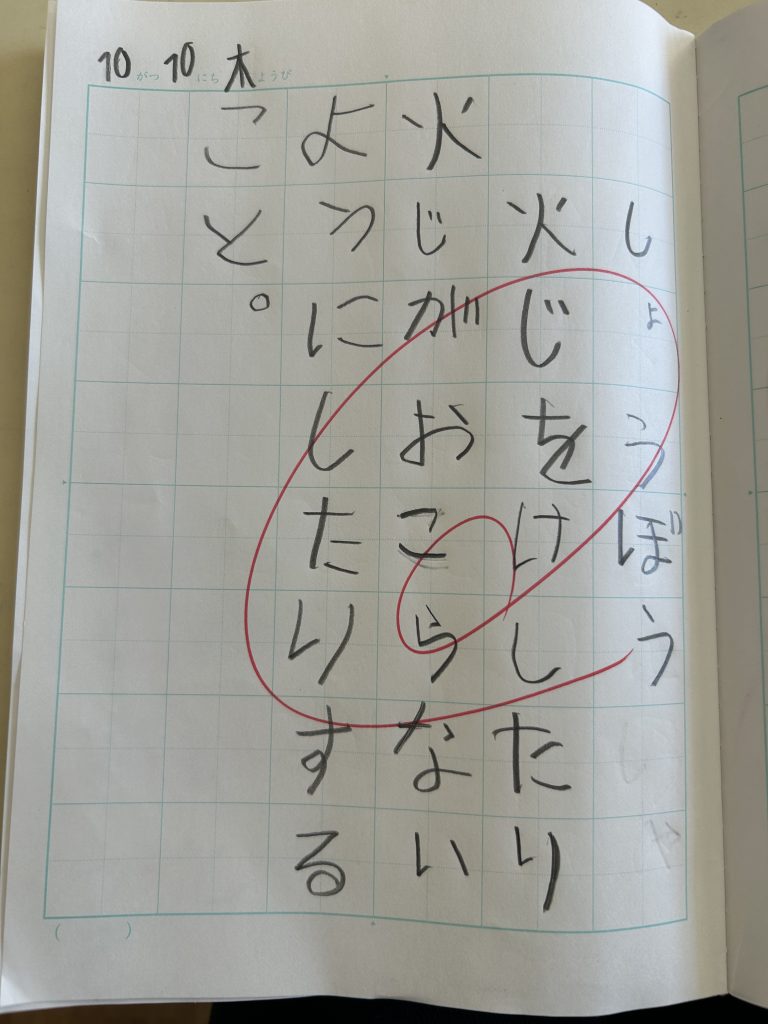 10がつ10にち木ようび
しょうぼう
火じをけしたり
火じがおこらない
ようにしたりする
こと。